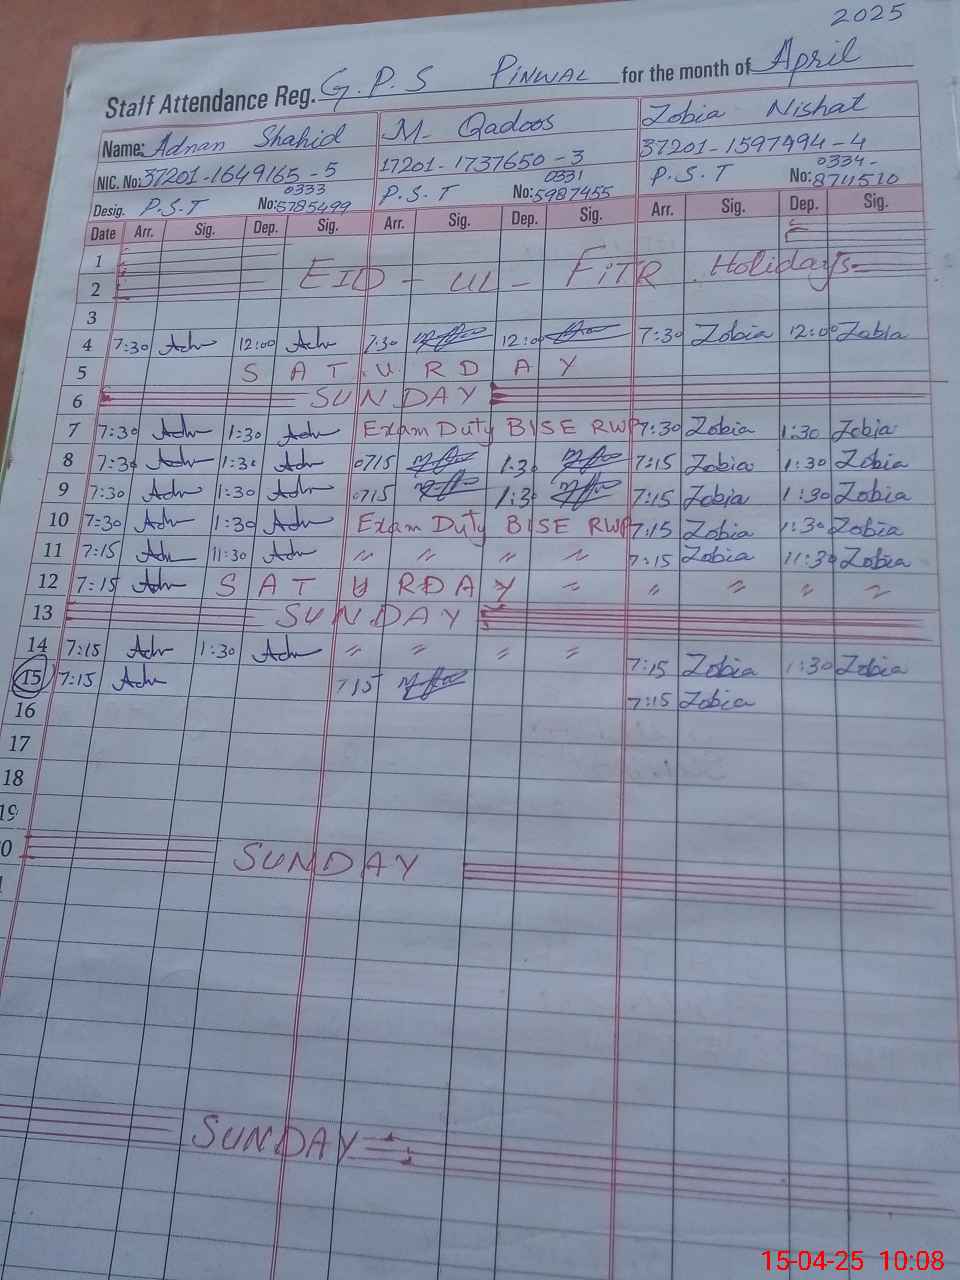 2025
Staff Attendance Reg. G.P.S PINWAL for the month of April
Name: Adnan Shahid M. Qadoos Zobia Nishat
NIC. No: 37201-1649165-5 17201-1737650-3 37201-1597494-4
Desig. P.S.T No: 0333 5785499 P.S.T No: 0331 5987455 P.S.T No: 0334-8711510
Date Arr. Sig. Dep. Sig. Arr. Sig. Dep. Sig. Arr. Sig. Dep. Sig.
1
2 EID - UL - FiTR Holidays
3
4 7:30 Adn 12:00 Adn 7:30 12:00 7:30 Zobia 12:00 Zobia
5 SATURDAY
6 SUNDAY
7 7:30 Adn 1:30 Adn Exam Duty BISE RWP 7:30 Zobia 1:30 Zobia
8 7:30 Adn 1:30 Adn 0715 1:30 7:15 Zobia 1:30 Zobia
9 7:30 Adn 1:30 Adn 0715 1:30 7:15 Zobia 1:30 Zobia
10 7:30 Adn 1:30 Adn Exam Duty BISE RWP 7:15 Zobia 1:30 Zobia
11 7:15 Adn 11:30 Adn " " " " 7:15 Zobia 11:30 Zobia
12 7:15 Adn SATURDAY " " " " "
13 SUNDAY
14 7:15 Adn 1:30 Adn " " " " 7:15 Zobia 1:30 Zobia
15 7:15 Adn 715 7:15 Zobia
16
17
18
19
0 SUNDAY
SUNDAY
15-04-25 10:08